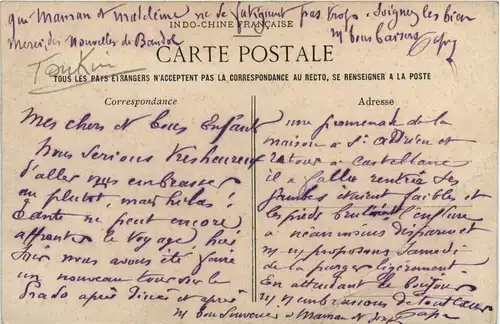 que Maman et Madeleine ne se fatiguent pas trop. Soignez les bien
INDO-CHINE FRANÇAISE
Merci des Nouvelles de Bandol
m bons baisers
CARTE POSTALE
Tonkin
TOUS LES PAYS ETRANGERS N'ACCEPTENT PAS LA CORRESPONDANCE AU RECTO, SE RENSEIGNER A LA POSTE
Correspondance
Mes chers et bons Enfants
Nous serions tres heureux
d'aller vous embrasser
au plutot, mais helas!
ne peut encore
affronter le voyage, hier
soir nous avons été faire
un nouveau tour sur le
Prado après diner et après
m bon Souvenir a Maman et
Adresse
une promenade de la
maison a St Adrien et
retour a Castellane
il a fallu rentrer ses
jambes étaient faible et
les pieds l'enflure
a néanmoins disparu et
m proposons Samedi
de la purger légèrement.
En attendant le
embrassons de tout cœur